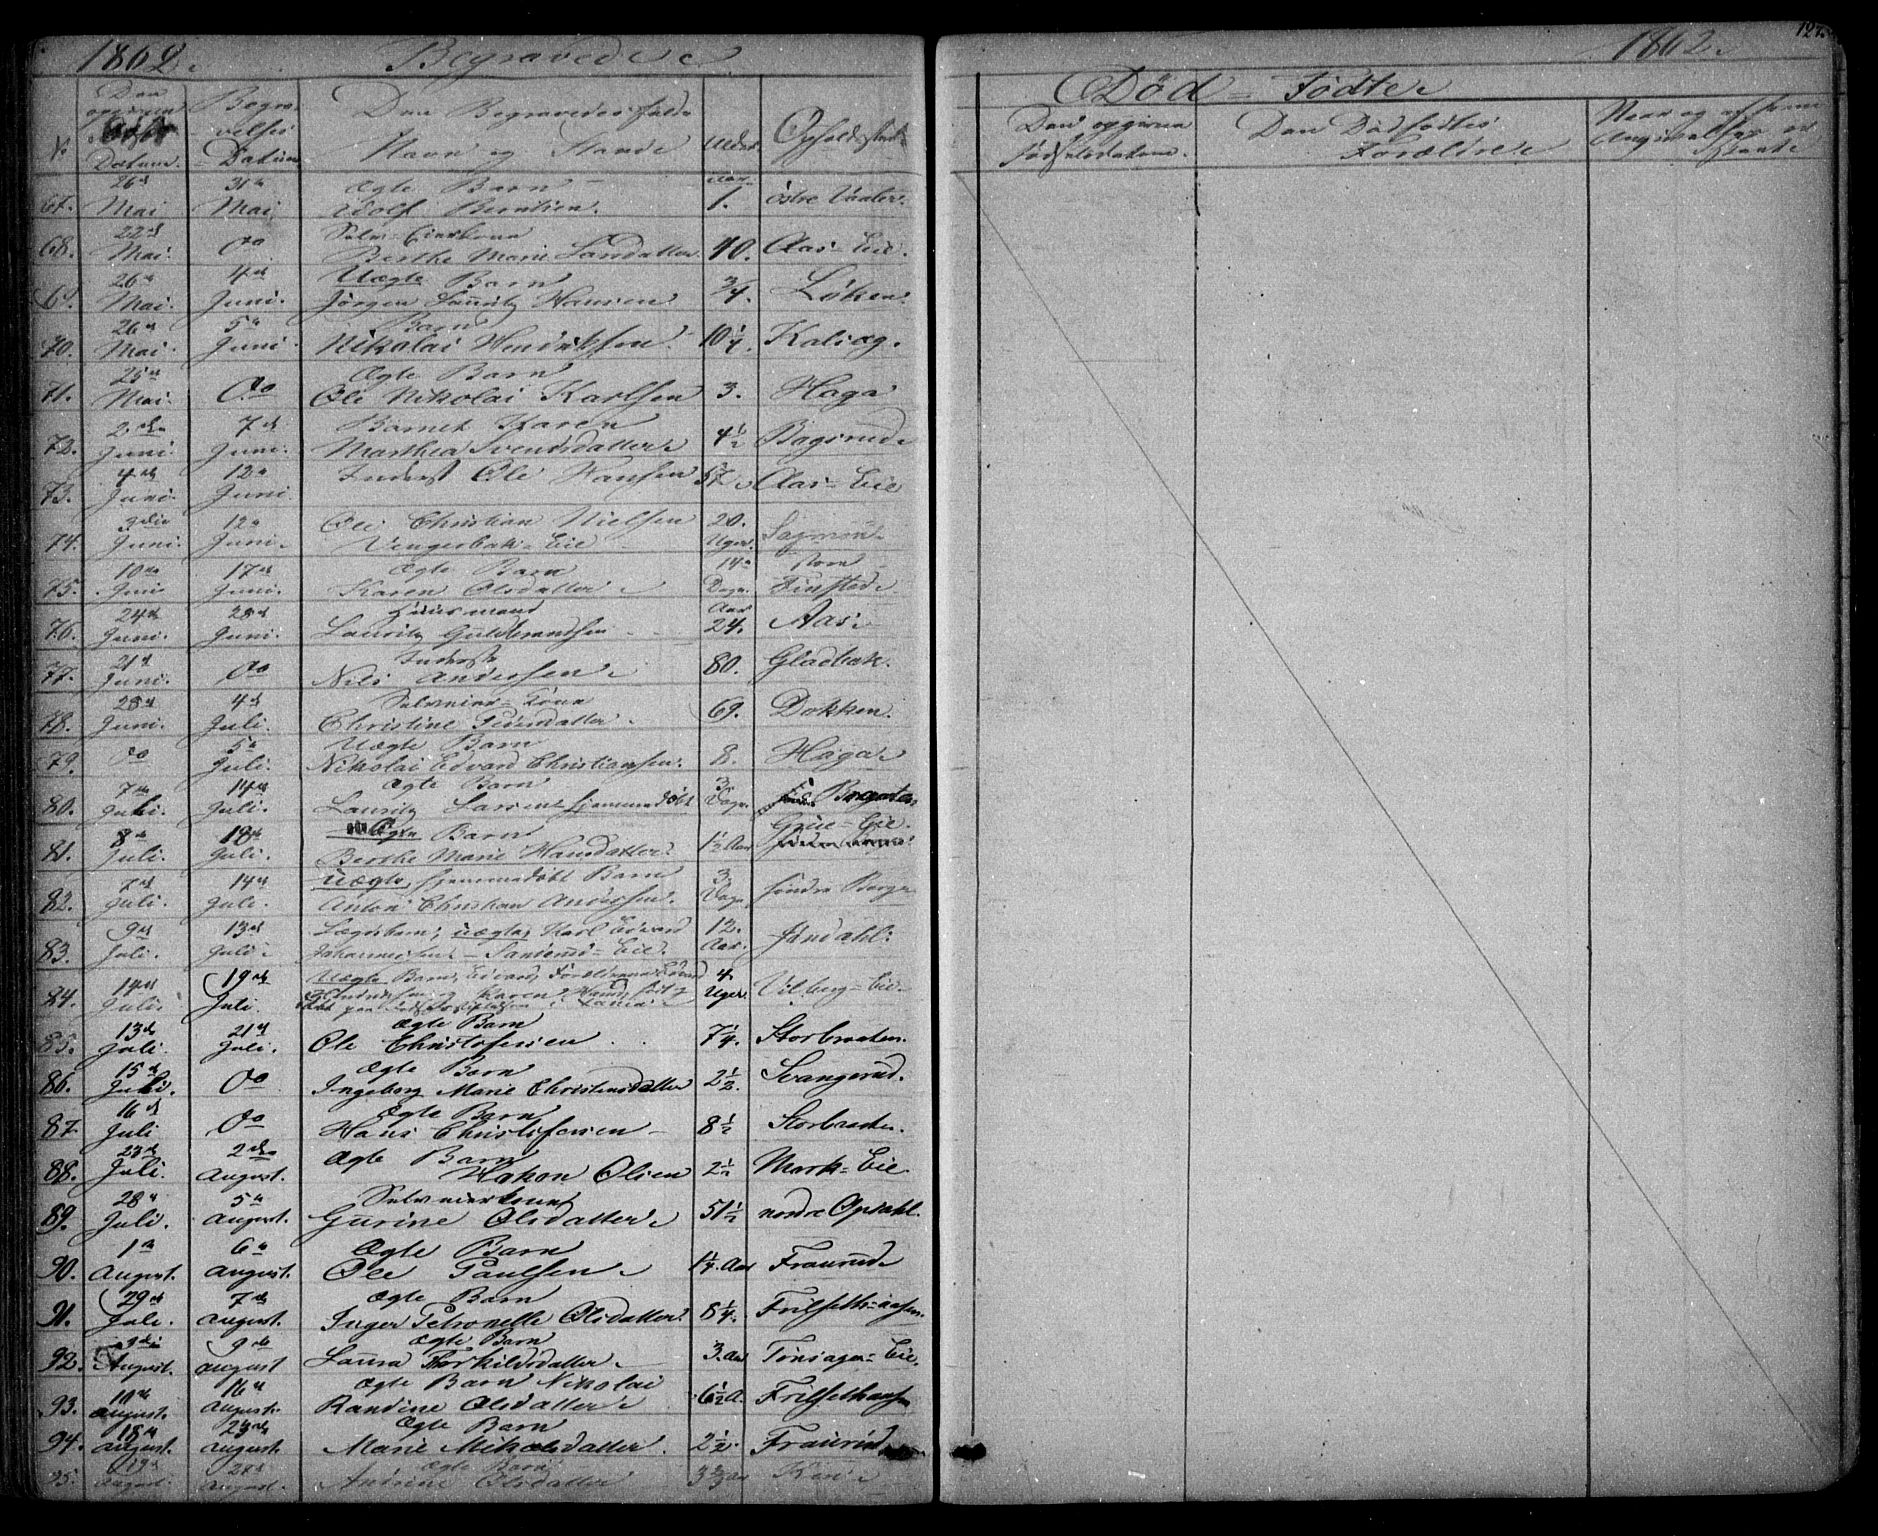 1862. Begravede.
Den opgivne Døds Datum.
Begravelses Datum
Den Begravedes fulde Navn og Stand
Alder
Opholdssted
No
67. 26de Mai 31te Mai Ægte Barn Adolf Berntsen. Aar 1. østre Vaaler.
68. 22de Mai. Do Selveierkone Berthe Marie Larsdatter. 40. Aas-Eie.
69. 26de Mai. 4de Juni. Uægte Barn Jørgen Lauritz Hansen. 3/4. Løken.
70. 26de Mai. 5te Juni. Barn Nikolai Hendriksen. 10 1/4.
71. 25de Mai. Do Ægte Barn Ole Nikolai Karlsen 3. Haga
72. 2den Juni. 7de Juni. Barnet Karen Marthea Svendsdatter. 4 1/2 Bogsrud.
73. 4de Juni. 12te Juni. Inderst Ole Hansen 57. Aas-Eie
74. 9die Juni. 12te Juni. Ole Christian Nielsen Vengerbak-Eie 20. Uger.
75. 10de Juni 17de Juni. Ægte Barn Karen Olsdatter. 14 Dage. store Finstad.
76. 24de Juni. 28de Juni. Huusmand Lauritz Guldbrandsen. Aar 24. Aas.
77. 21de Juni. Do Inderst Nils Andersen. 80. Gladbak.
78. 28de Juni. 4de Juli. Selveier-Kone Christine Pedersdatter. 69. Dokken.
79. Do 5te Juli. Uægte Barn Nikolai Edvard Christiansen. 8. Haga.
80. 7de Juli. 14de Juli. Ægte Barn Lauritz Larsen hjemmedøbt 3 Dage.
81. 8de Juli. 12te Juli. Ægte Barn Berthe Marie Hansdatter. 1 1/2 Aar Grue-Eie.
82. 7de Juli. 14de Juli. Uægte hjemmedøbt Barn Anton Christian Andersen. 3 Dage. søndre Borge
83. 9de Juli. 13de Juli. Lægdsbarn, uægte, Karl Edvard Johannesen - Eie. 12. Aar.
84. 14de Juli. 19de Juli. Uægte Barn, Edvard, Forældrene: Edvard og Karen 4 Uger. Vilberg-Eie.
85. 13de Juli. 21de Juli. Ægte Barn Ole Christofersen. 7 1/4. Storbraaten.
86. 15de Juli. Do Ægte Barn Ingeborg Marie Christensdatter 2 1/2. Svangerud.
87. 16de Juli Do Ægte Barn Hans Christofersen 8 1/2 Storbraaten.
88. 23de Juli. 2den August. Ægte Barn Hakon Olsen 2 1/2 Mork-Eie
89. 28de Juli. 5te August. Selveierkone Gurine Olsdatter. 51 1/2 nordre Opdahl.
90. 1ste August. 6te August. Ægte Barn Ole Paulsen. 1 1/4. Aar Fraurud.
91. 29de Juli. 7de August. Ægte Barn Inger Petronelle Olsdatter. 8 1/4. Frilseth-aasen.
92. August. 9de August Ægte Barn Laura Thorkildsdatter. 3. Aar Tonsager-Eie.
93. 10de August. 16de August. Ægte Barn Nikolai Randine Olsdatter. 6 1/2 A. Frilsethaasen
94. 18de August. 23de August. Ægte Barn Marie Mikalsdatter. 2 1/2. Fraurud
95. 19de August. 27de August. Ægte Barn Andrine Olsdatter
127.
1862.
Død-Fødte.
Den opgivne Fødselsdatum.
Den Dødfødtes Forældre.